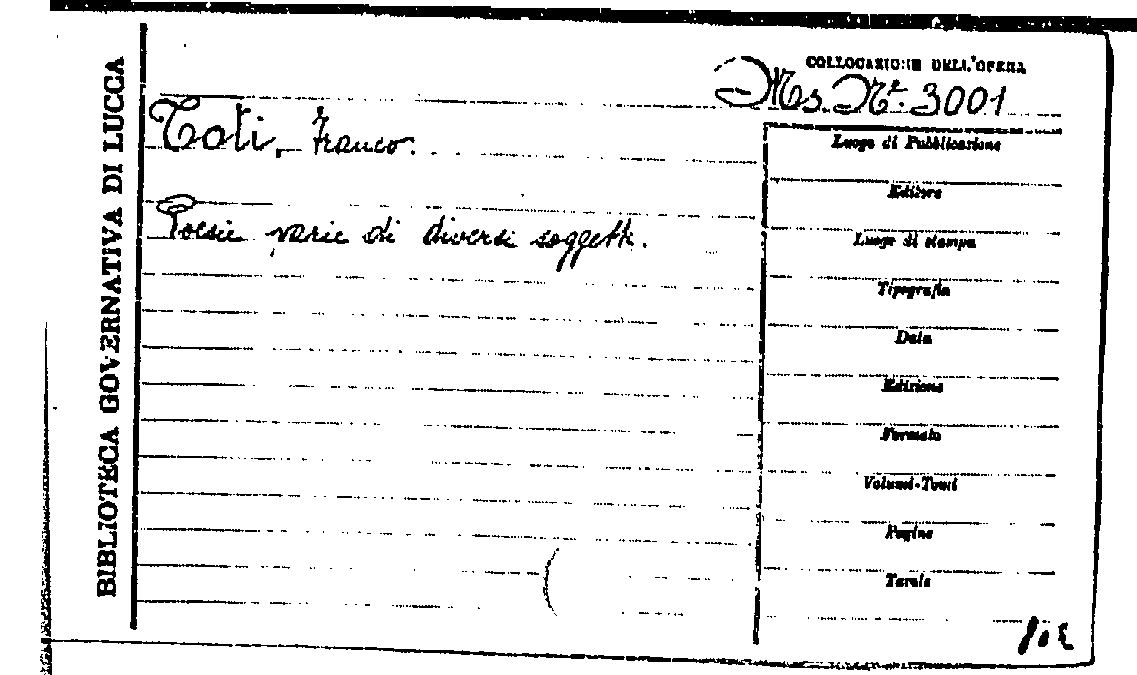 BIBLIOTECA GOVERNATIVA DI LUCCA
COLLOCAZIONE DELL'OPERA
Ms. Nº. 3001
Toti, Franco.
Poesie varie di diversi soggetti.
Luogo di Pubblicazione
Editore
Luogo di stampa
Tipografia
Data
Edizione
Formato
Volumi-Tomi
Pagine
Tavole